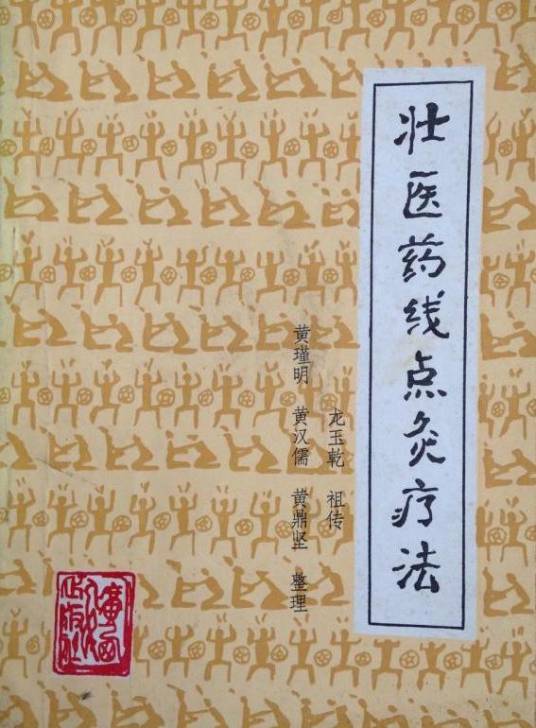 壮医药线点灸疗法
龙玉乾 祖传
黄瑾明 黄汉儒 黄鼎坚 整理
广西人民出版社